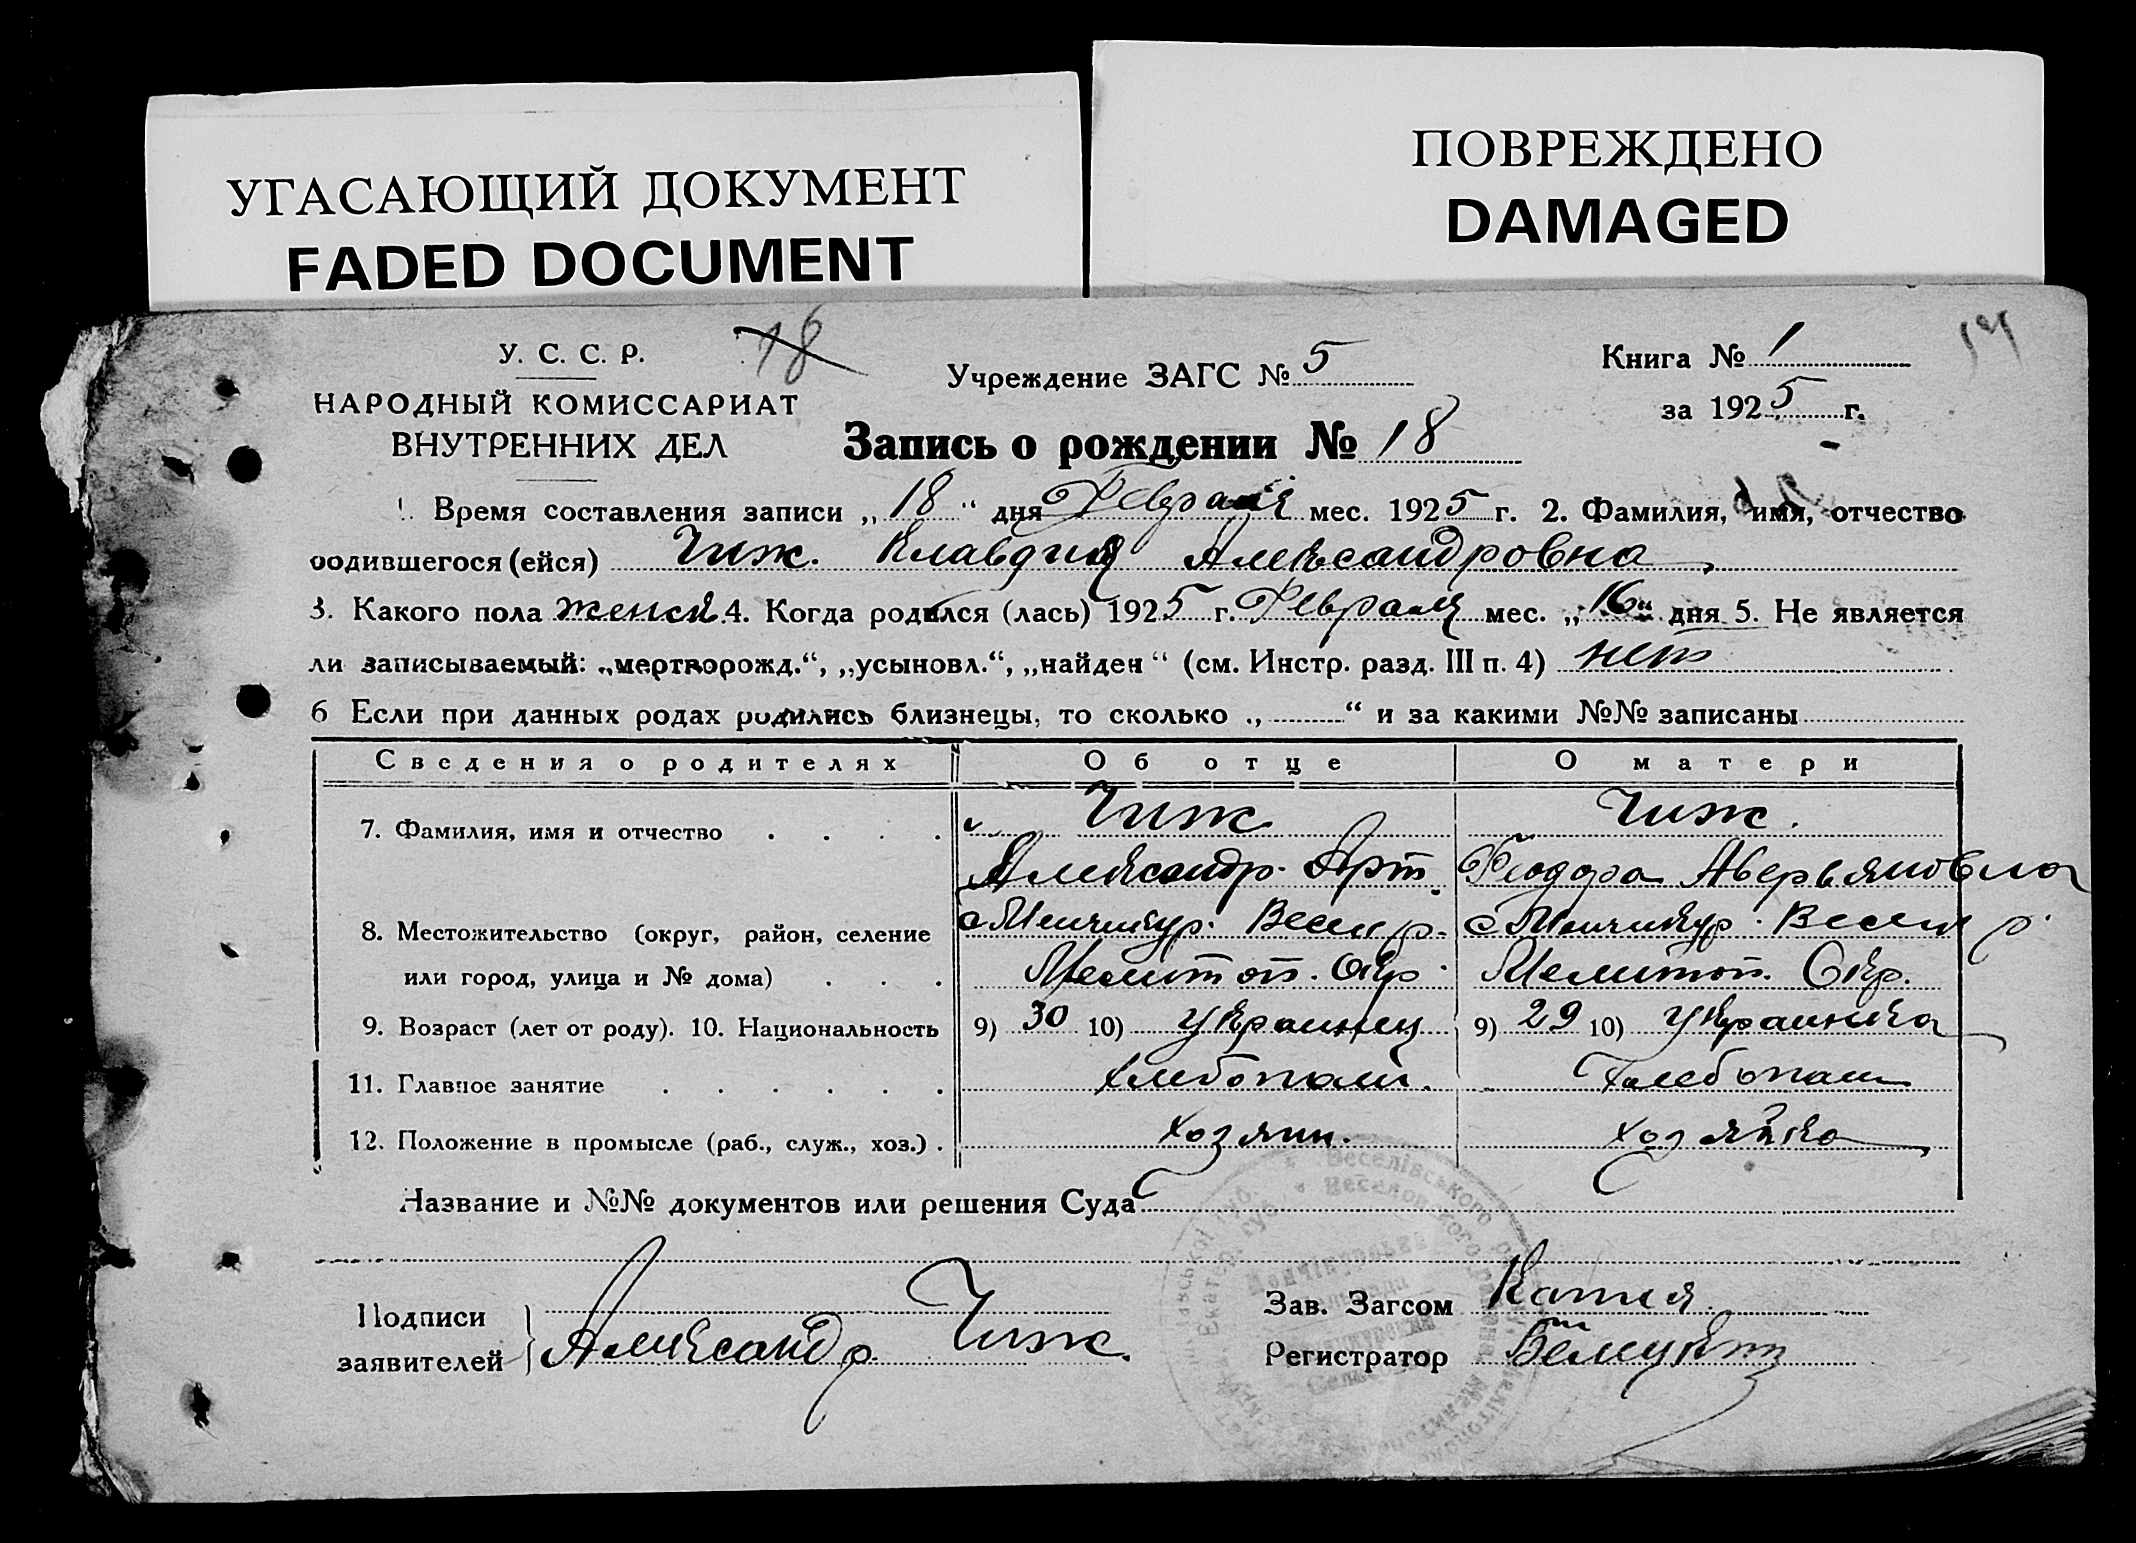 УГАСАЮЩИЙ ДОКУМЕНТ
FADED DOCUMENT
ПОВРЕЖДЕНО
DAMAGED
У. С. С. Р.
НАРОДНЫЙ КОМИССАРИАТ
ВНУТРЕННИХ ДЕЛ
18
Учреждение ЗАГС № 5
Книга № 1
за 1925 г.
Запись о рождении № 18
1. Время составления записи „18“ дня Февраля мес. 1925 г. 2. Фамилия, имя, отчество
родившегося (ейся) Чиж. Клавдия Александровна
3. Какого пола женск 4. Когда родился (лась) 1925 г. Февраля мес. „16“ дня 5. Не является
ли записываемый: „мертворожд.“, „усыновл.“, „найден“ (см. Инстр. разд. III п. 4) нет
6 Если при данных родах родились близнецы, то сколько „ “ и за какими №№ записаны
Сведения о родителях Об отце О матери
7. Фамилия, имя и отчество . . . . Чиж Чиж.
Александр. Арт. Феодора Аверьяновна
8. Местожительство (округ, район, селение с Менчикур. Весел р. с Менчикур. Весел р.
или город, улица и № дома) . . . Мелитоп. Окр. Мелитоп. Окр.
9. Возраст (лет от роду). 10. Национальность 9) 30 10) Украинец 9) 29 10) Украинка
11. Главное занятие . . . . . . хлебопаш. хлебопаш
12. Положение в промысле (раб., служ., хоз.) . хозяин. хозяйка
Название и №№ документов или решения Суда
Подписи
заявителей
Александр Чиж.
Зав. Загсом
Регистратор